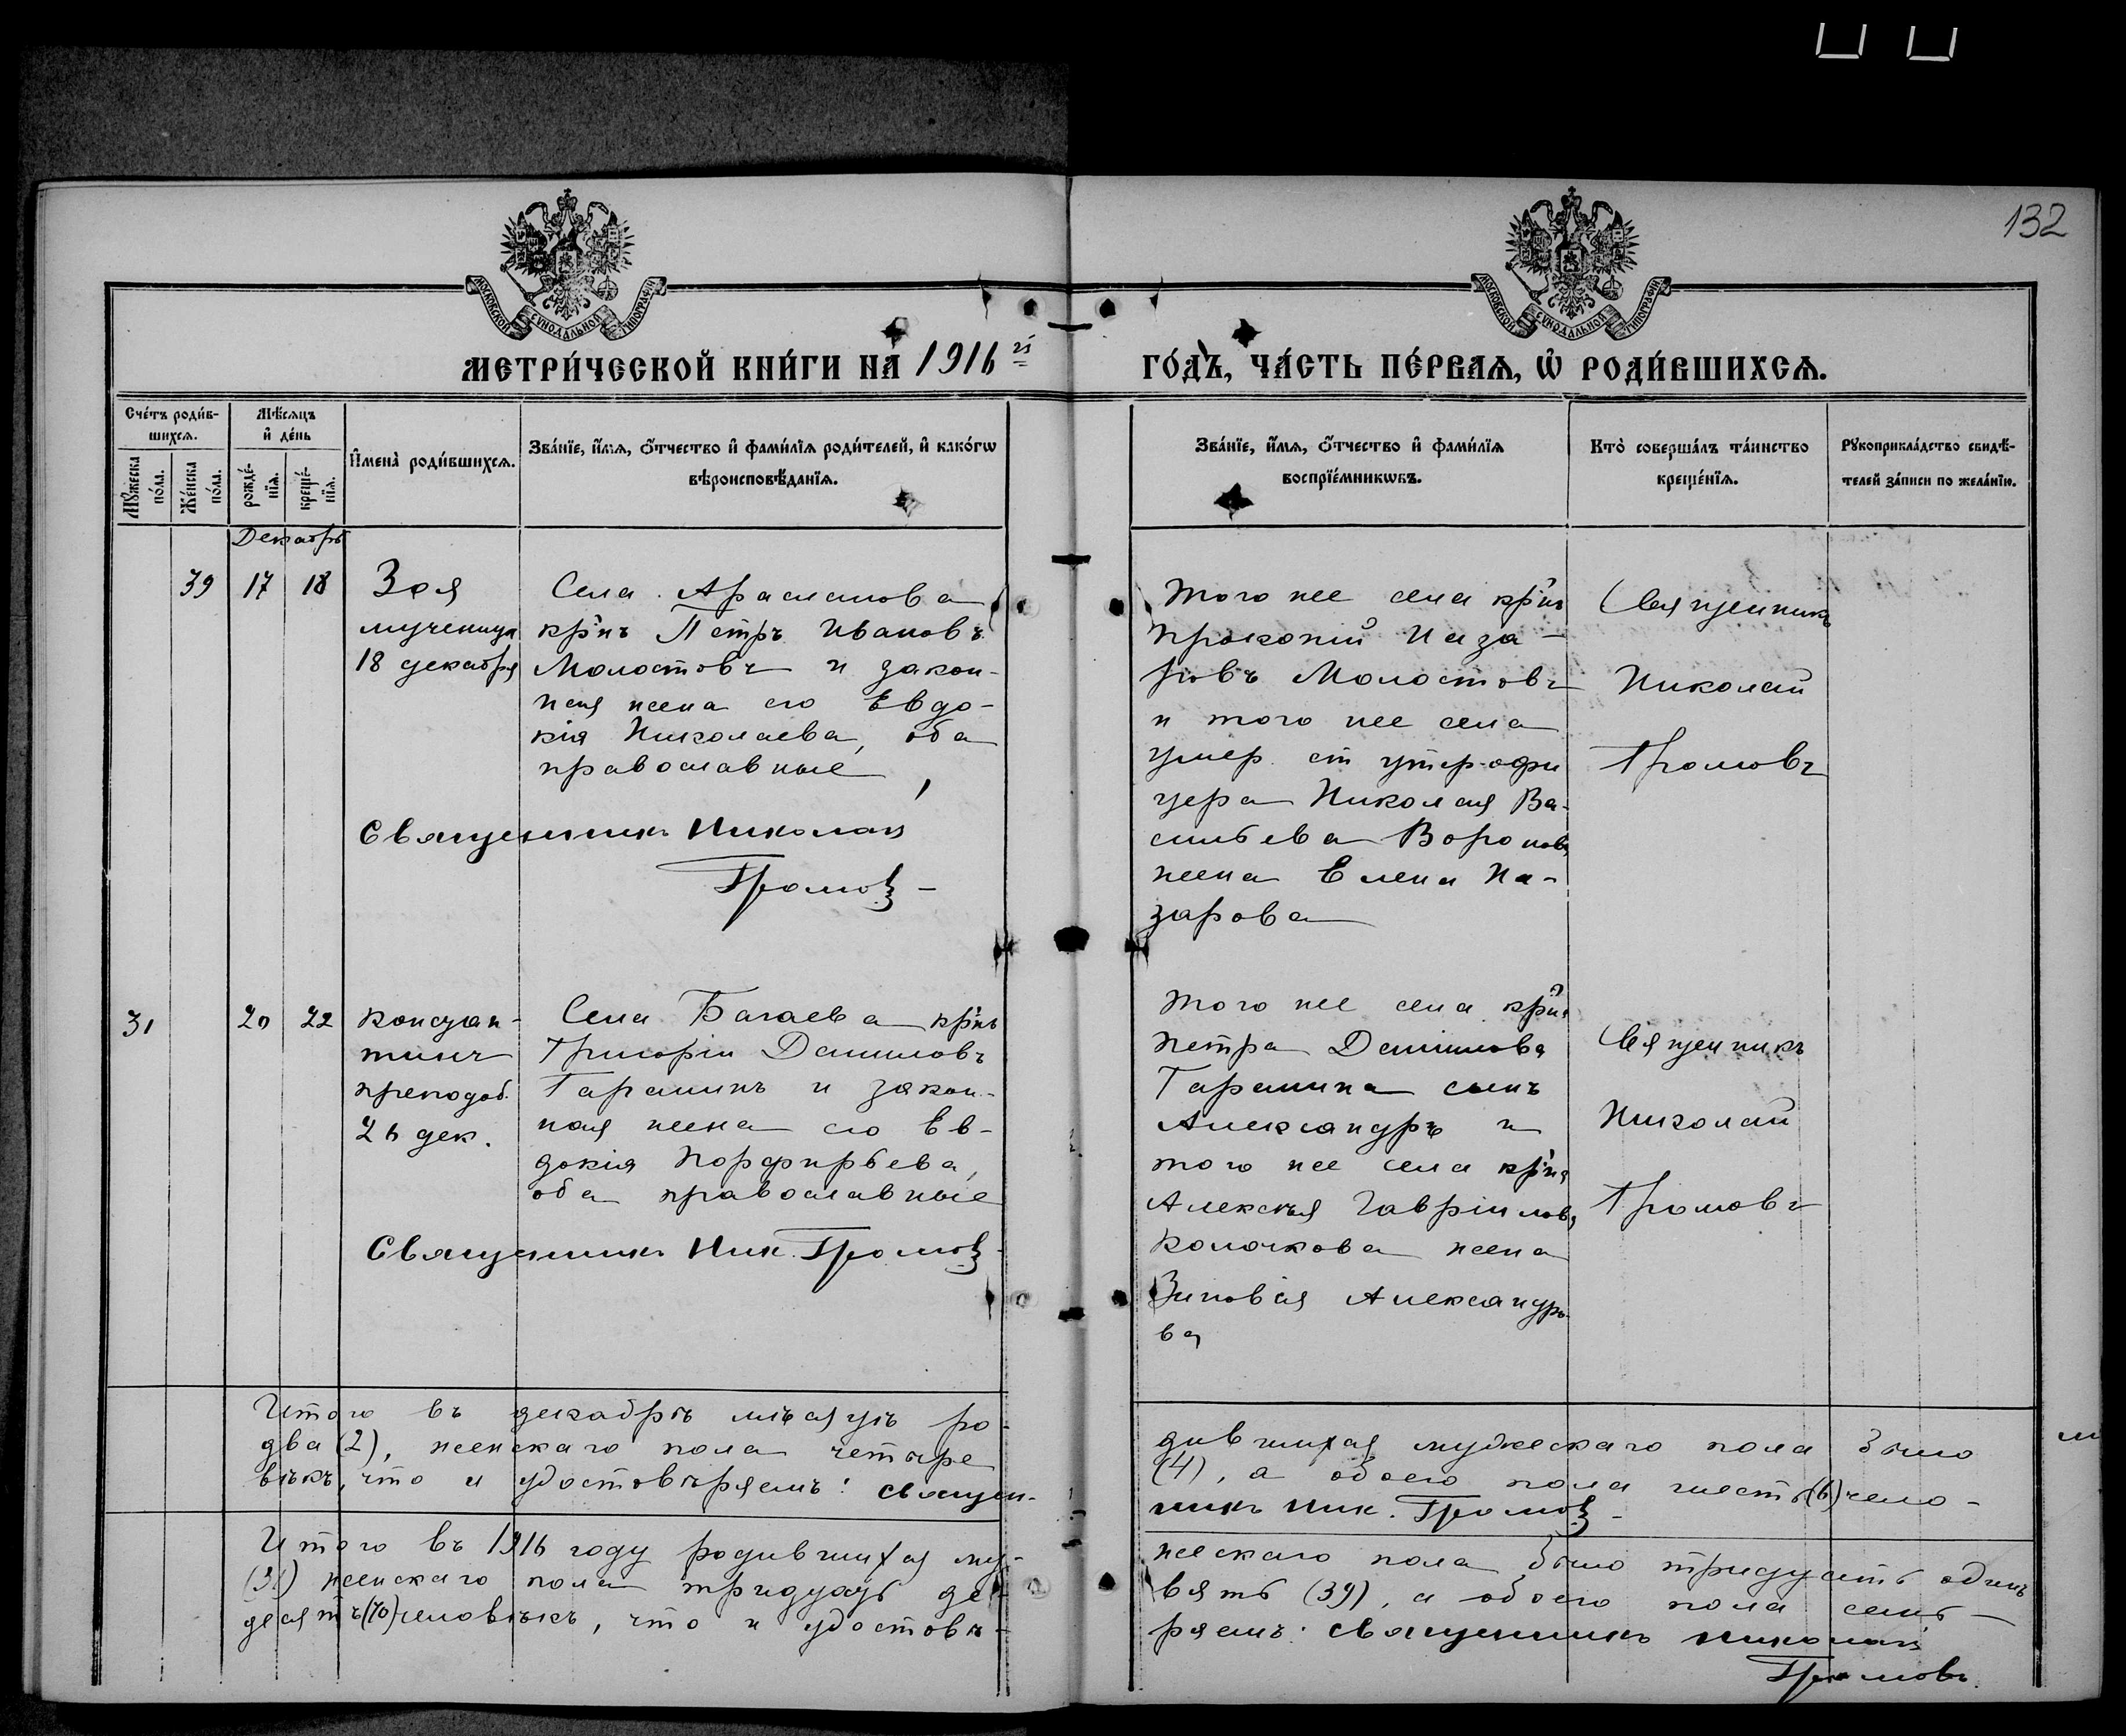 132
МОСКОВСКОЙ СѴНОДАЛЬНОЙ ТИПОГРАФІИ
МОСКОВСКОЙ СѴНОДАЛЬНОЙ ТИПОГРАФІИ
МЕТРИ́ЧЕСКОЙ КНИ́ГИ НА 1916 й
ГО́ДЪ, ЧА́СТЬ ПЕ́РВАѦ, Ѿ РОДИ́ВШИХСѦ.
Сче́тъ роди́в-
шихсѧ.
Мꙋ́жеска
по́ла.
Же́нска
по́ла.
Мѣ́сѧцъ
и҆ де́нь
рожде́-
нїѧ.
креще́-
нїѧ.
И҆мена̀ роди́вшихсѧ.
Зва́нїе, и҆́мѧ, ѻ҆́тчество и҆ фами́лїѧ роди́телей, и҆ како́гѡ
вѣроисповѣ́данїѧ.
Зва́нїе, и҆́мѧ, ѻ҆́тчество и҆ фами́лїѧ
воспрїе́мникѡвъ.
Кто̀ соверша́лъ та́инство
креще́нїѧ.
Рꙋкоприкла́дство свидѣ́-
телей за́писи по жела́нїю.
Декабрь
39 17 18
Зоя
мученица
18 декабря
Села Арасланова
кр'нъ Петръ Ивановъ
Молостовъ и закон-
ная жена его Евдо-
кія Николаева, оба
православные
Священникъ Николай
Громовъ
Того же села кр'нъ
Прокопій Наза-
ровъ Молостовъ
и того же села
умер. ст. унтер-офи
цера Николая Ва-
сильева Воронова
жена Елена На-
зарова
Священникъ
Николай
Громовъ
31 20 22
Констан-
тинъ
преподоб.
26 дек.
Села Багаева кр'нъ
Григорій Даниловъ
Гаранинъ и закон-
ная жена его Ев-
докія Порфирьева,
оба православные
Священникъ Ник. Громовъ
Того же села кр'на
Петра Данилова
Гаранина сынъ
Александръ и
того же села кр'на
Алексѣя Гаврілова
жена
Зиновія Александро-
ва
Священникъ
Николай
Громовъ
Итого въ декабрѣ мѣсяцѣ ро-
дившихся мужескаго пола было
два (2), женскаго пола четыре
(4), а обоего пола шесть (6) чело-
вѣкъ, что и удостовѣряемъ: священ-
никъ Ник. Громовъ
Итого въ 1916 году родившихся му-
жескаго пола было тридцать одинъ
(31) женскаго пола тридцать де-
вять (39), а обоего пола семь-
десятъ (70) человѣкъ, что и удостовѣ-
ряемъ: священникъ Николай
Громовъ.